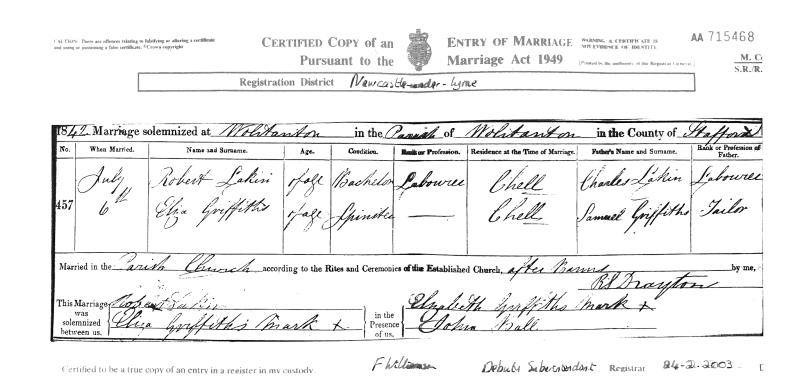 CAUTION: There are offences relating to falsifying or altering a certificate
and using or possessing a false certificate. ©Crown copyright
CERTIFIED COPY of an ENTRY OF MARRIAGE
Pursuant to the Marriage Act 1949
WARNING: A CERTIFICATE IS
NOT EVIDENCE OF IDENTITY.
[Printed by the authority of the Registrar General]
AA 715468
M. C
S.R./R.
Registration District Newcastle-under-Lyme
1842 Marriage solemnized at Wolstanton in the Parish of Wolstanton in the County of Stafford
No. When Married. Name and Surname. Age. Condition. Rank or Profession. Residence at the Time of Marriage. Father's Name and Surname. Rank or Profession of Father.
457 July 6th
Robert Lakin of age Bachelor Labourer Chell Charles Lakin Labourer
Eliza Griffiths of age Spinster — Chell Samuel Griffiths Tailor
Married in the Parish Church according to the Rites and Ceremonies of the Established Church, after Banns by me,
Drayton
This Marriage was solemnized between us,
Robert Lakin
Eliza Griffiths Mark x
in the Presence of us.
Elizabeth Griffiths Mark x
John Ball
Certified to be a true copy of an entry in a register in my custody.
Deputy Superintendent Registrar 24-2-2003